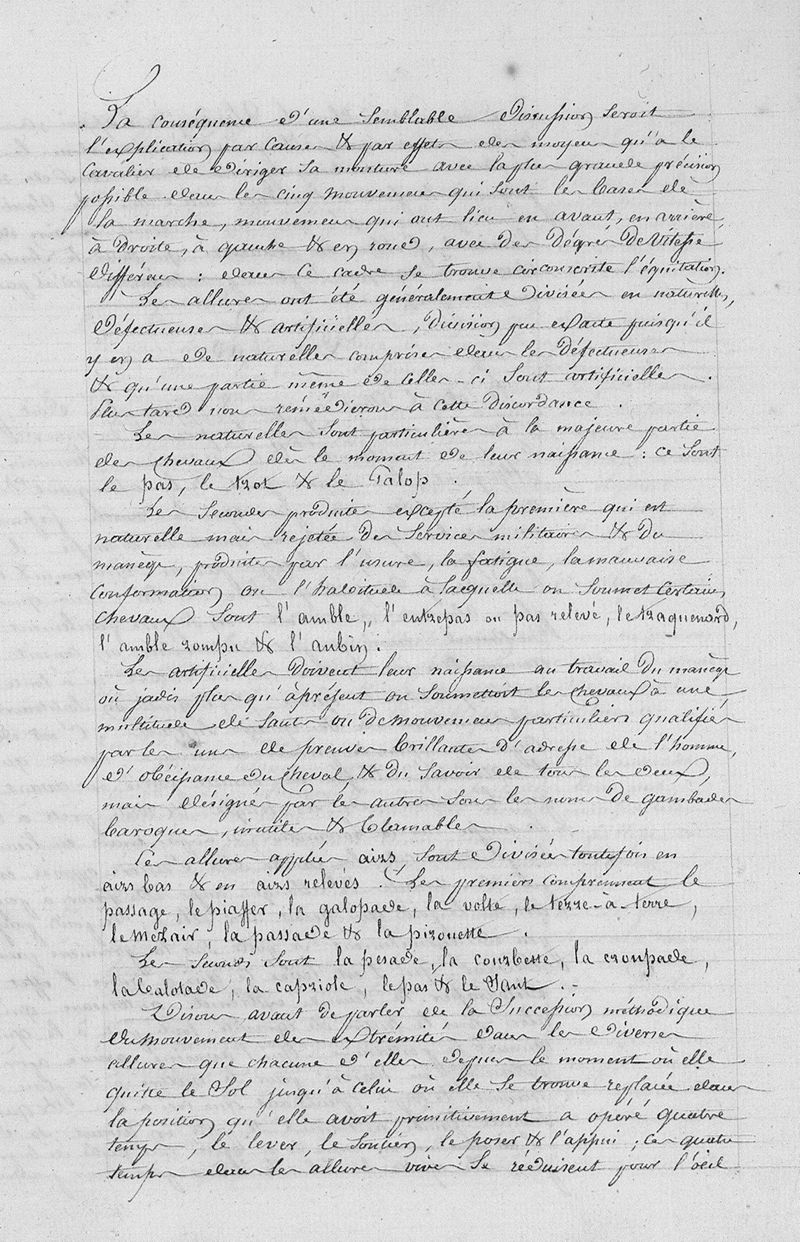 La conséquence d'une semblable discussion seroit
l'explication par causes & par effets des moyens qu'a le
Cavalier de diriger sa monture avec la plus grande précision
possible dans les cinq mouvemens qui sont les bases de
la marche, mouvemens qui ont lieu en avant, en arrière,
à droite, à gauche & en rond, avec des dégrés de vitesse
différens : dans ce cadre se trouve circonscrite l'équitation.
Les allures ont été généralement divisées en naturelles,
défectueuses & artificielles, division peu exacte puisqu'il
y en a de naturelles comprises dans les défectueuses
& qu'une partie même de celles-ci sont artificielles.
Plus tard nous remédierons à cette discordance.
Les naturelles sont particulières à la majeure partie
des chevaux dès le moment de leur naissance : ce sont
le pas, le trot & le Galop.
Les secondes produites excepté la première qui est
naturelle mais rejetée des services militaires & du
manège, produites par l'usure, la fatigue, la mauvaise
conformation ou l'habitude à laquelle on soumet certains
chevaux sont l'amble, l'entrepas ou pas relevé, le traquenard,
l'amble rompu & l'aubin.
Les artificielles doivent leur naissance au travail du manège
où jadis plus qu'àprésent on soumettoit les chevaux à une
multitude de sauts ou de mouvemens particuliers qualifiés
par les uns de preuves brillantes d'adresse de l'homme,
d'obéissance du cheval, & du savoir de tous les deux,
mais désignés par les autres sous les noms de gambades
baroques, inutiles & blamables.
Ces allures appelés airs, sont divisées toutefois en
airs bas & en airs relevés. Les premiers comprennent le
passage, le piaffer, la galopade, la volte, le terre-à-terre,
le mézair, la passade & la pirouette.
Les seconds sont la pesade, la courbette, la croupade,
la balotade, la capriole, le pas & le Saut.
Disons avant de parler de la succession méthodique
du mouvement des extrémités dans les diverses
allures que chacune d'elles depuis le moment où elle
quitte le sol jusqu'à celui où elle se trouve replacée dans
la position qu'elle avoit primitivement a opéré quatre
temps, le lever, le soutien, le poser & l'appui ; ces quatre
temps dans les allures vives se réduisent pour l'oeil